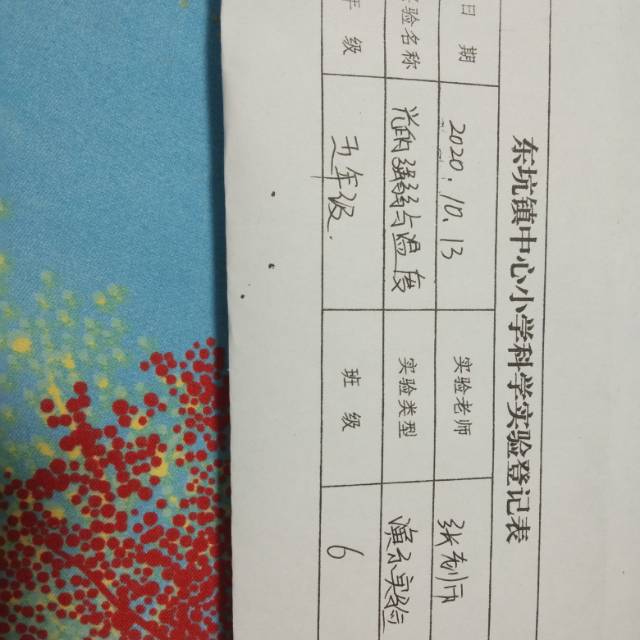 东坑镇中心小学科学实验登记表
日 期 2020.10.13 实验老师
验名称 光的强弱与温度 实验类型 演示实验
年 级 五年级. 班 级 6